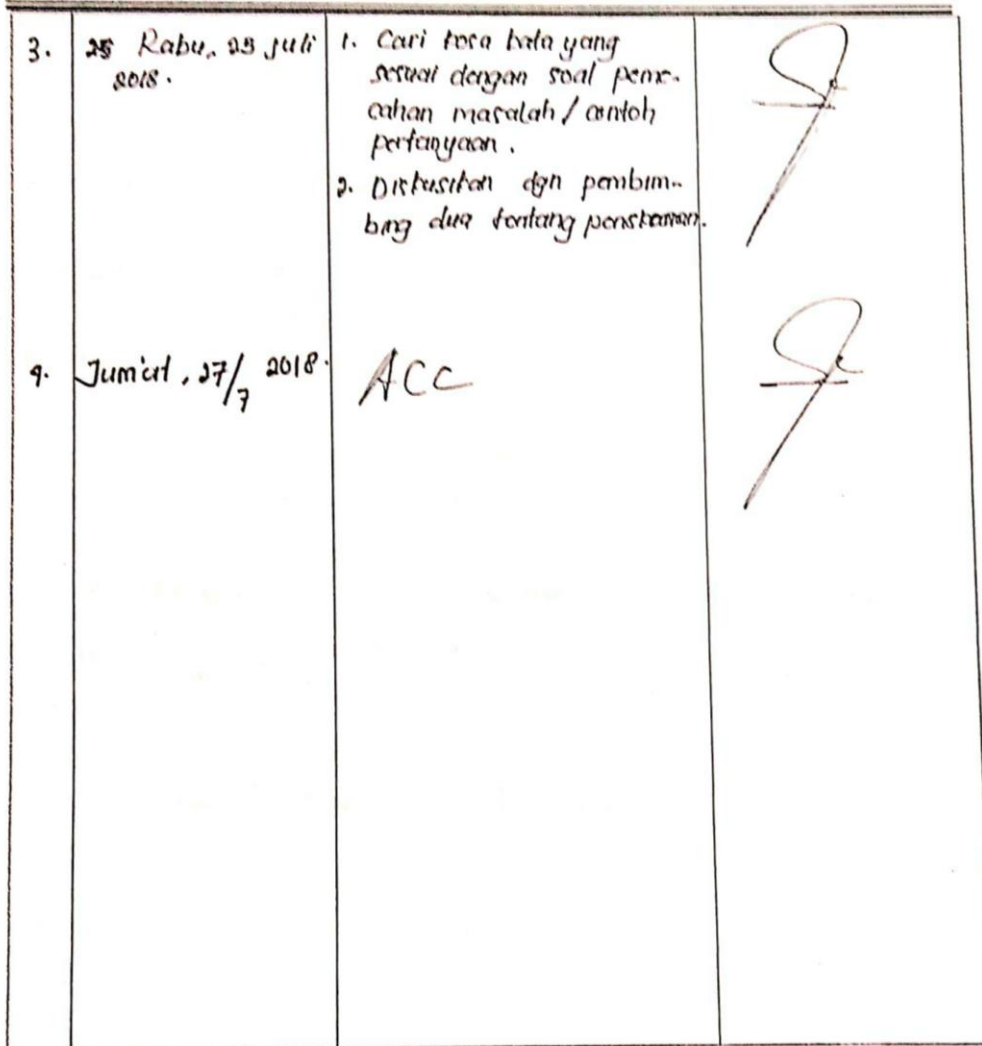 3.
Rabu, 25 juli
2018.
1. Cari kosa kata yang
sesuai dengan soal peme-
cahan masalah / contoh
pertanyaan.
2. Diskusikan dgn pembim-
bing dua tentang penskoran.
4.
Jum'at, 27/7 2018.
ACC